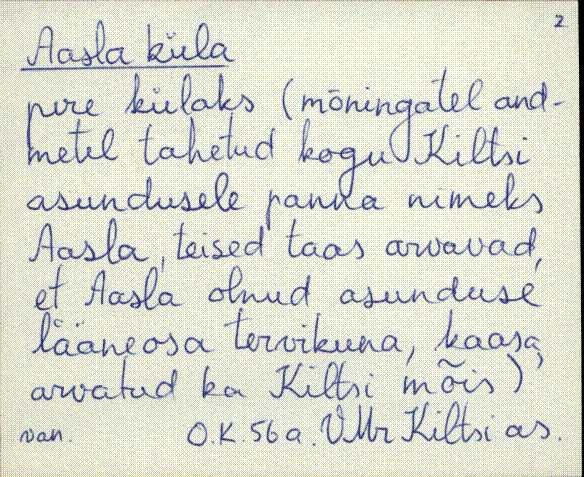 2
Aasla küla
pere külaks (mõningatel and-
metel tahetud kogu Kiltsi
asundusele panna nimeks
Aasla, teised taas arvavad,
et Aasla olnud asunduse
lääneosa tervikuna, kaasa
arvatud ka Kiltsi mõis)
van. O.K. 56 a. VMr Kiltsi as.